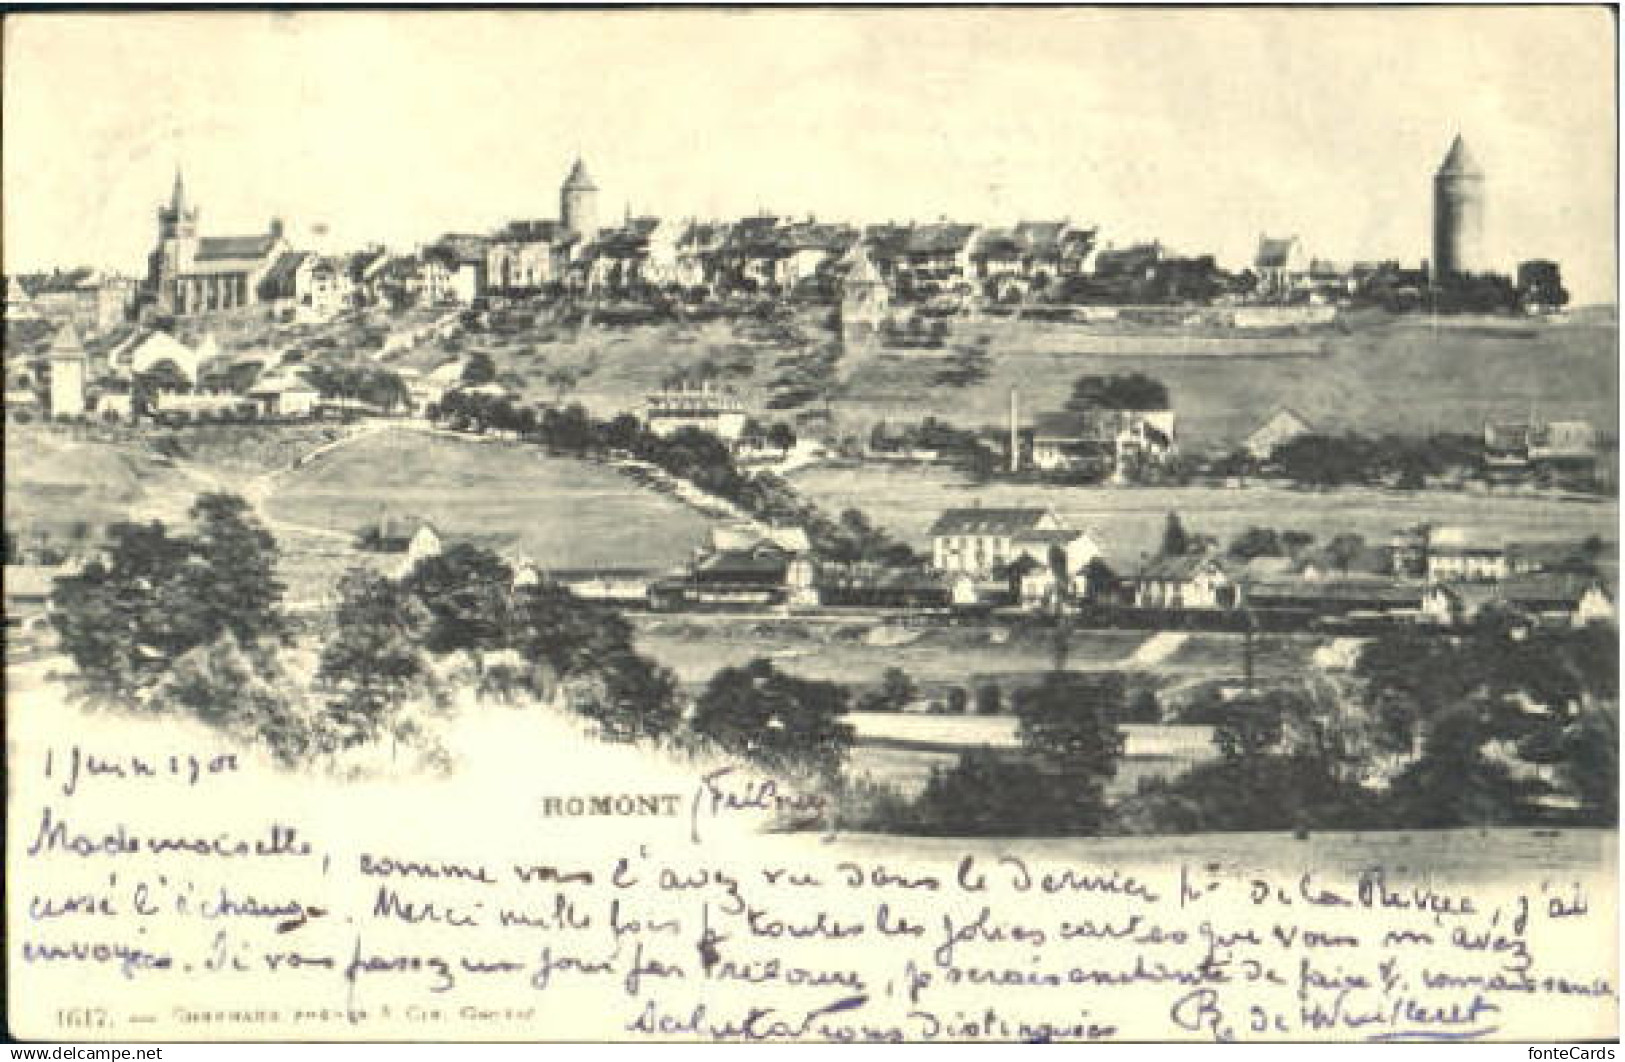 1 Juin 1901
ROMONT (Fribourg
Mademoiselle, comme vous l'avez vu dans le dernier de la Revue, j'ai
cessé l'échange. Merci mille fois p toutes les jolies cartes que vous m'avez
envoyées. Si vous passez un jour par Fribourg, je serais enchantée de faire connaissance.
Salutations distinguées
R. de Wuilleret
1617. — CHARNAUX FRÈRES & CIE, GENÈVE
fonteCards